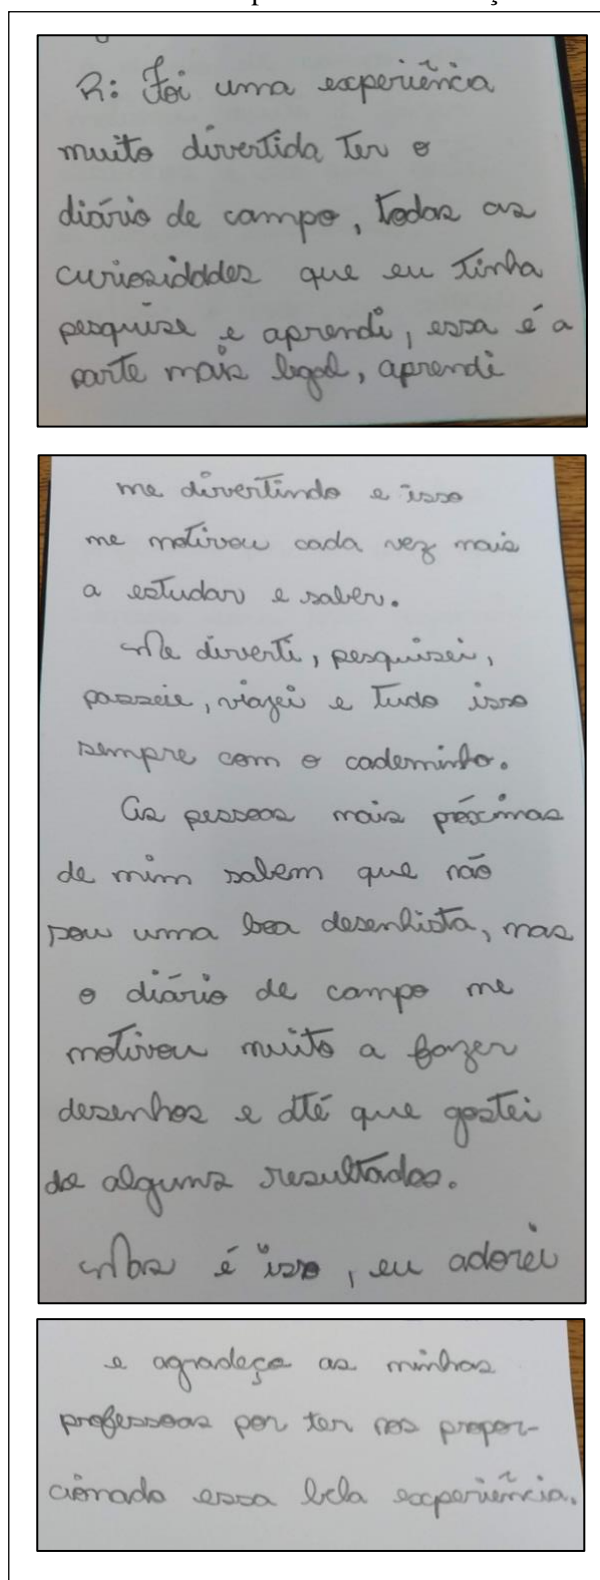 R: Foi uma experiência
muito divertida ter o
diário de campo, todas as
curiosidades que eu tinha
pesquise e aprendi, essa é a
parte mais legal, aprendi
me divertindo e isso
me motivou cada vez mais
a estudar e saber.
Me diverti, pesquisei,
passeie, viajei e tudo isso
sempre com o caderninho.
As pessoas mais próximas
de mim sabem que não
sou uma boa desenhista, mas
o diário de campo me
motivou muito a fazer
desenhos e até que gostei
de alguns resultados.
Mas é isso, eu adorei
e agradeço as minhas
professoas por ter nos propor-
cionado essa bela experiência.